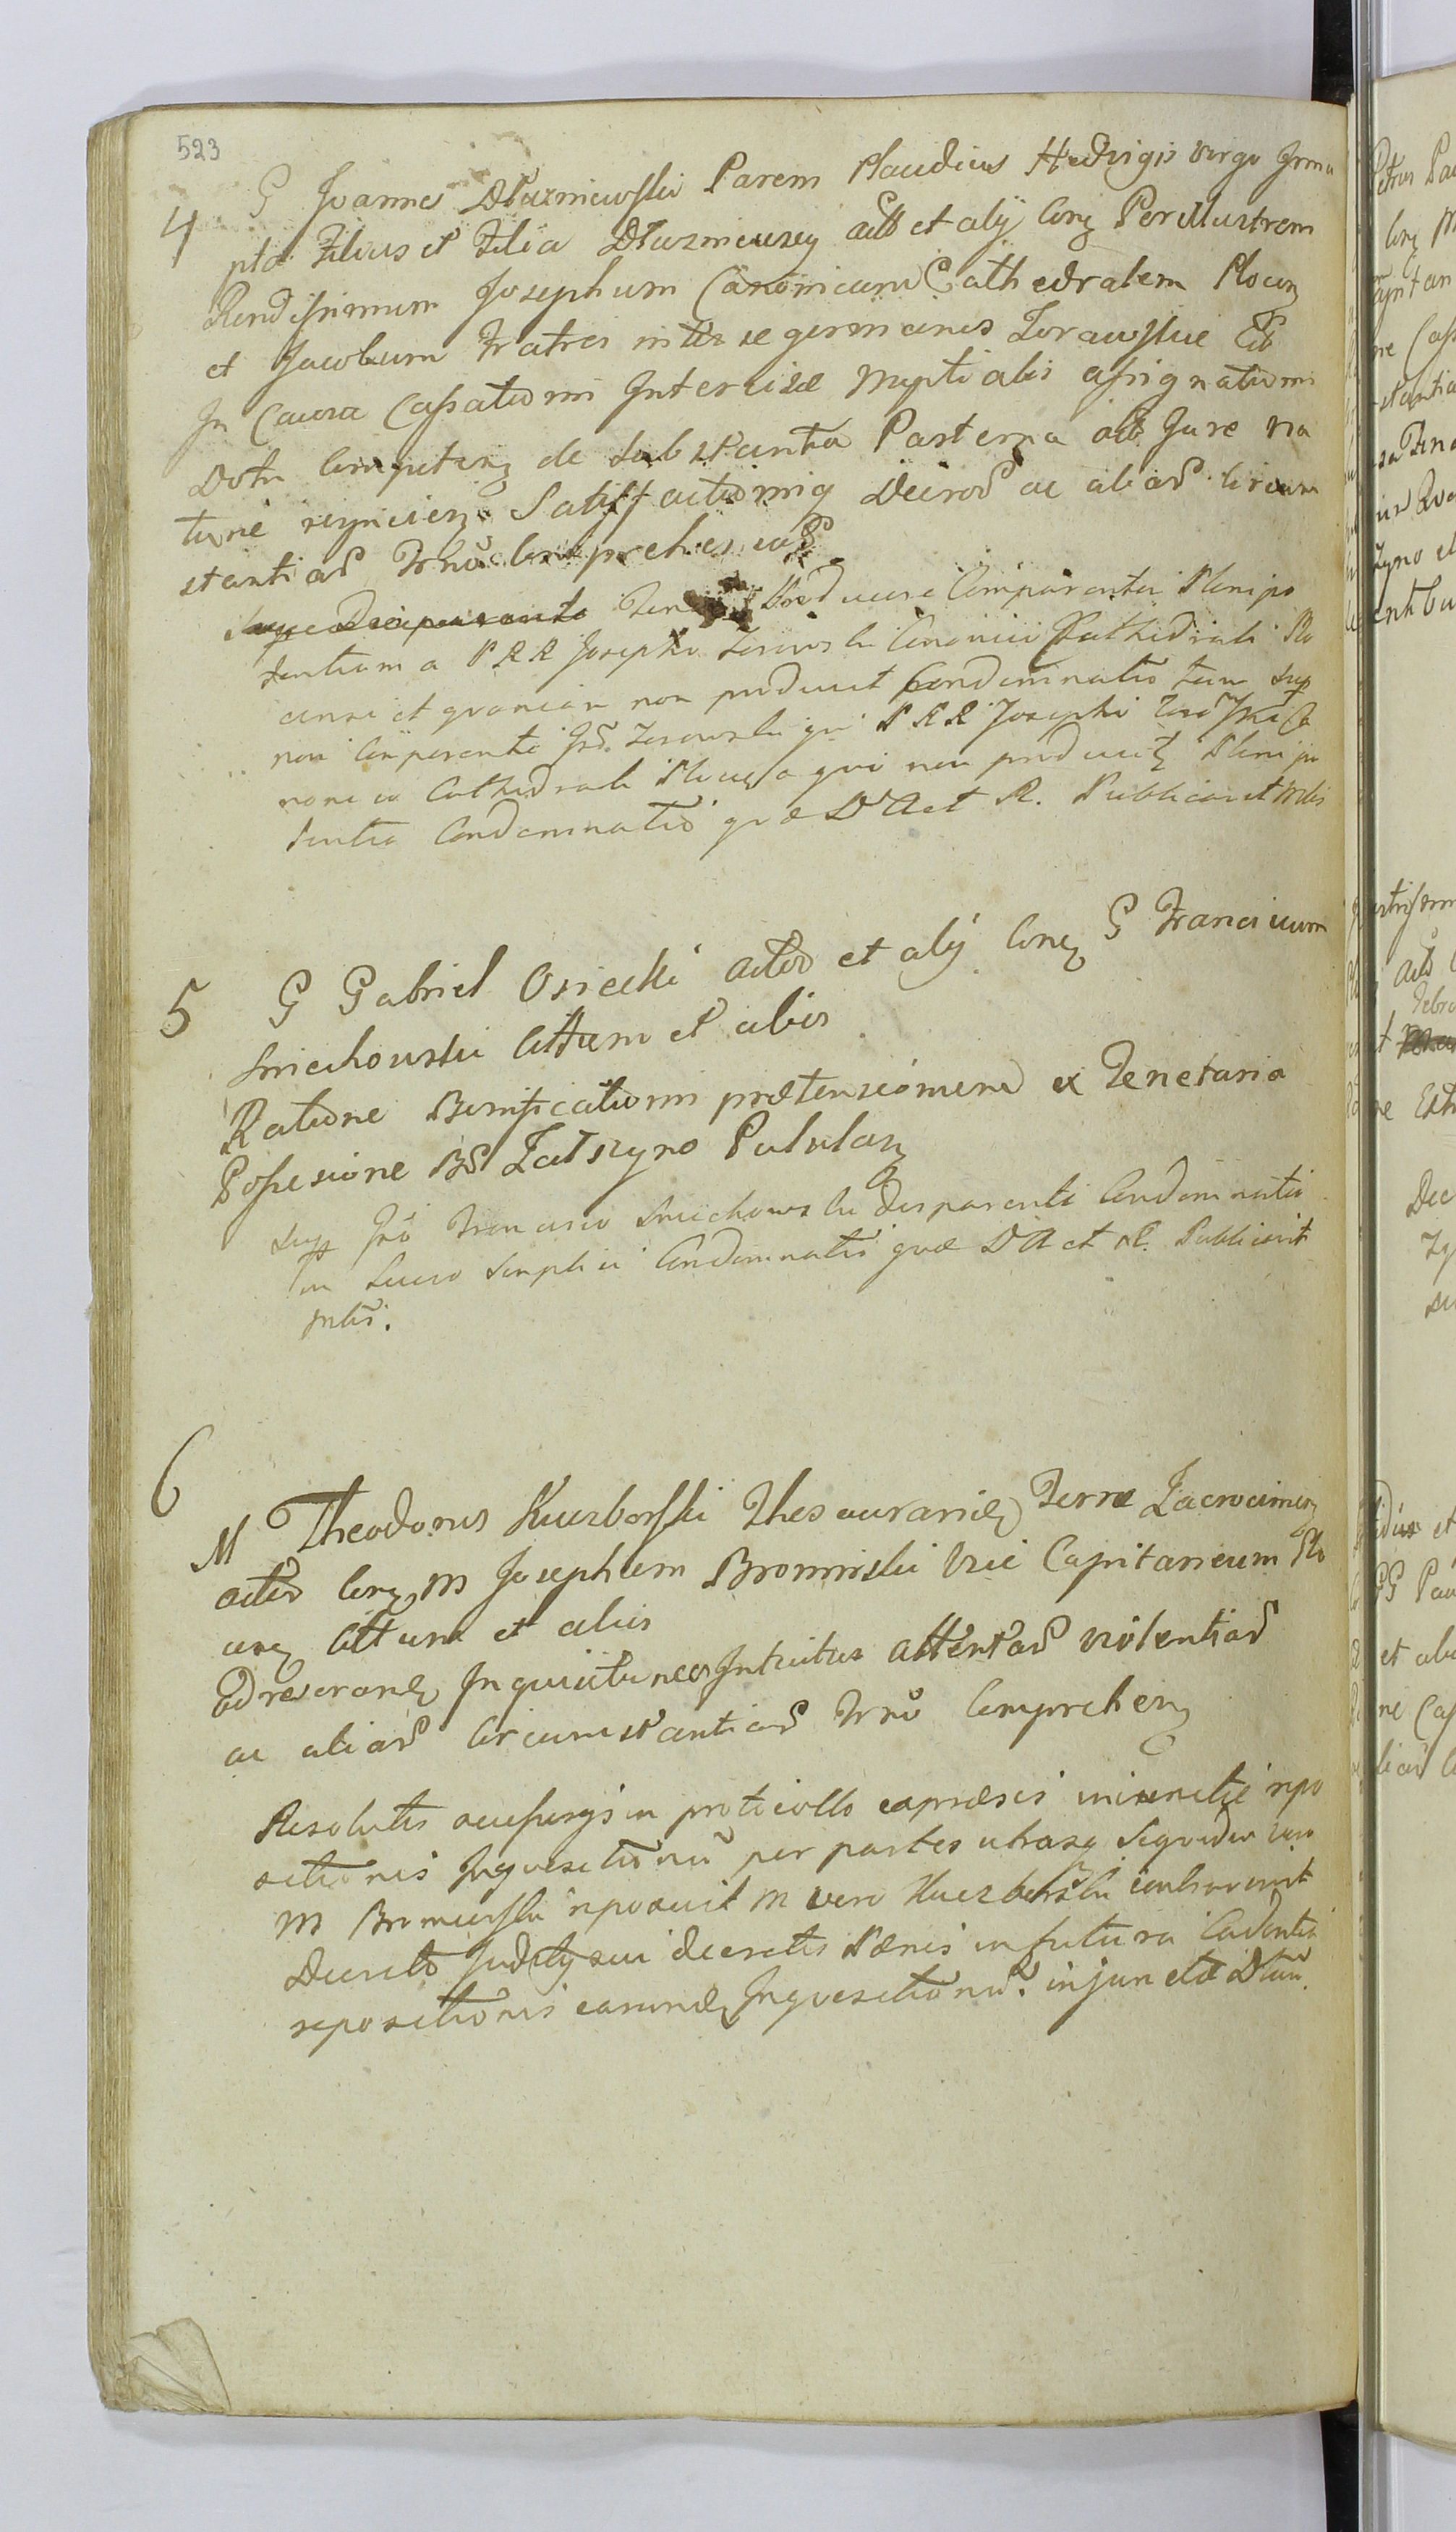 523
4 G Joannes Dłuzniewski Parens Claudius Hedvigis Virgo Innu
pta Filius et Filia Dłuzniewscy act et alÿ Conz Perillustrem
Rendissimum Josephum Canonicum Cathedralem Plocenz
et Jacobum Fratres inter se germanes Zorawskie Cit
In Causa Cassationis Intercisæ Nuptialis assignationis
Dotis Competenz de Substantia Paterna act Jure na
tune Satisffactionisq ac aliar Circum
stantiar Trno Comprehen
Producere Comparentes Plenipo
tentiam a P R R Josepho Canonici Cathedrali Plo
censi et quoniam non produxit Condemnatio tum sup
non Comparente Jnd. qui P R R Josephi Ca
nonico Cathedrali Plocenz a quo non Plenipo
tentia Condemnatio quæ D Act R. Publicavit Mlis
5 G Gabriel Osiecki actor et alÿ Conz G Franciscum
Smiechowski Cittum et alios
Ratione Bonificationis prætensionum ex Tenetaria
Possesione BB Zatszyno Pululanz
Supp Francisco Smiechowski disparente Condemnatio
in Lucro Simplici Condemnatio quæ D A et R. Publicavit
Mlis.
6
M Theodorus Kuczborski Thesaurarides Terræ Zacrocimenz
actor Conz M Josephum Bromirski Vice Capitaneum Plo
cenz Cittum et alios
Ad reserandz Inquisitiones Intuitu attentar violentiar
ac aliar Circumstantiar Trno Comprehenz
Resolutis accessorys in protocollo expræsis iniunctæ repo
sitionis Inquisitionu per partes utrasq siquidem
M Bromirski reposuit M vero Kuczborski contravenit
Decreto Judicÿ sui decretis Pænis in futura Cadentia
repositionis earundz Inquisitionu. injunctæ